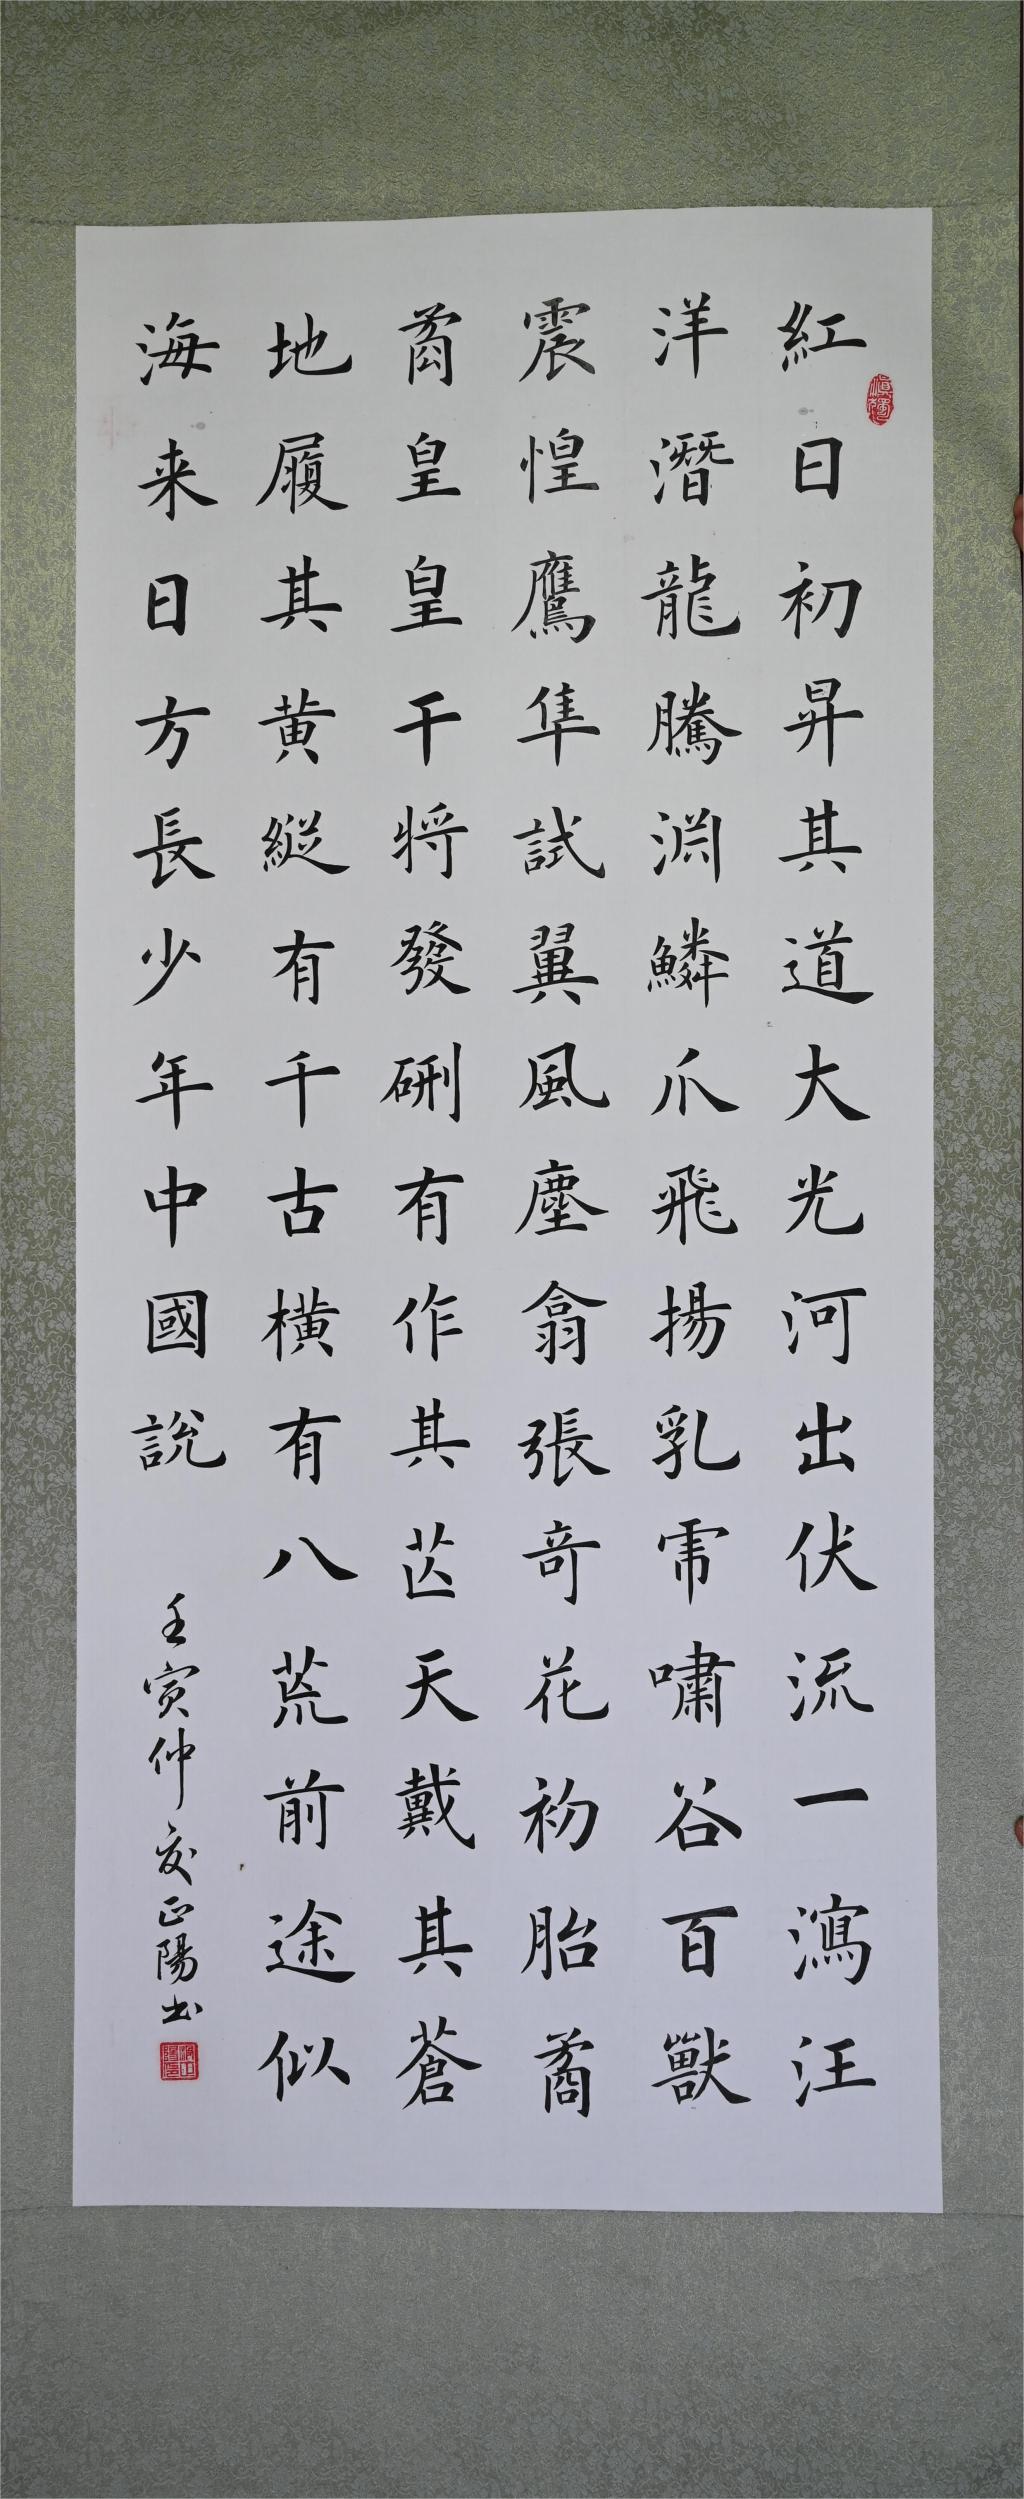 紅日初昇其道大光河出伏流一瀉汪
洋潛龍騰淵鱗爪飛揚乳虎嘯谷百獸
震惶鷹隼試翼風塵翕張奇花初胎矞
矞皇皇干將發硎有作其芒天戴其蒼
地履其黄縱有千古橫有八荒前途似
海来日方長少年中國說
壬寅仲夏正陽书
慎獨